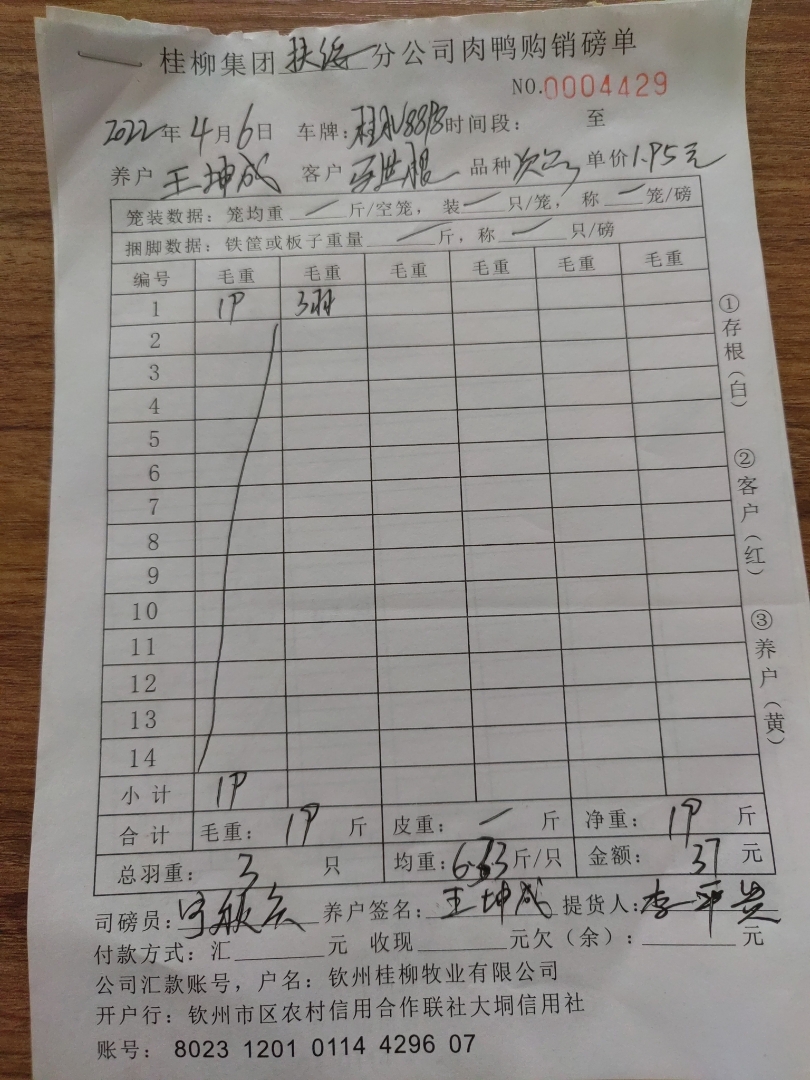 桂柳集团扶绥分公司肉鸭购销磅单
NO.0004429
2022年4月6日 车牌: 时间段: 至
养户 王坤成 客户 品种 次品 单价 1.95元
笼装数据：笼均重 — 斤/空笼，装 — 只/笼，称 — 笼/磅
捆脚数据：铁筐或板子重量 — 斤，称 — 只/磅
编号 毛重 毛重 毛重 毛重 毛重 毛重
1 19 3羽
2
3
4
5
6
7
8
9
10
11
12
13
14
小计 19
合计 毛重：19 斤 皮重：— 斤 净重：19 斤
总羽重：3 只 均重：6.33斤/只 金额：37 元
司磅员: 养户签名：王坤成 提货人:李平贵
付款方式：汇 元 收现 元欠（余）： 元
公司汇款账号，户名：钦州桂柳牧业有限公司
开户行：钦州市区农村信用合作联社大垌信用社
账号： 8023 1201 0114 4296 07
①存根（白）
②客户（红）
③养户（黄）